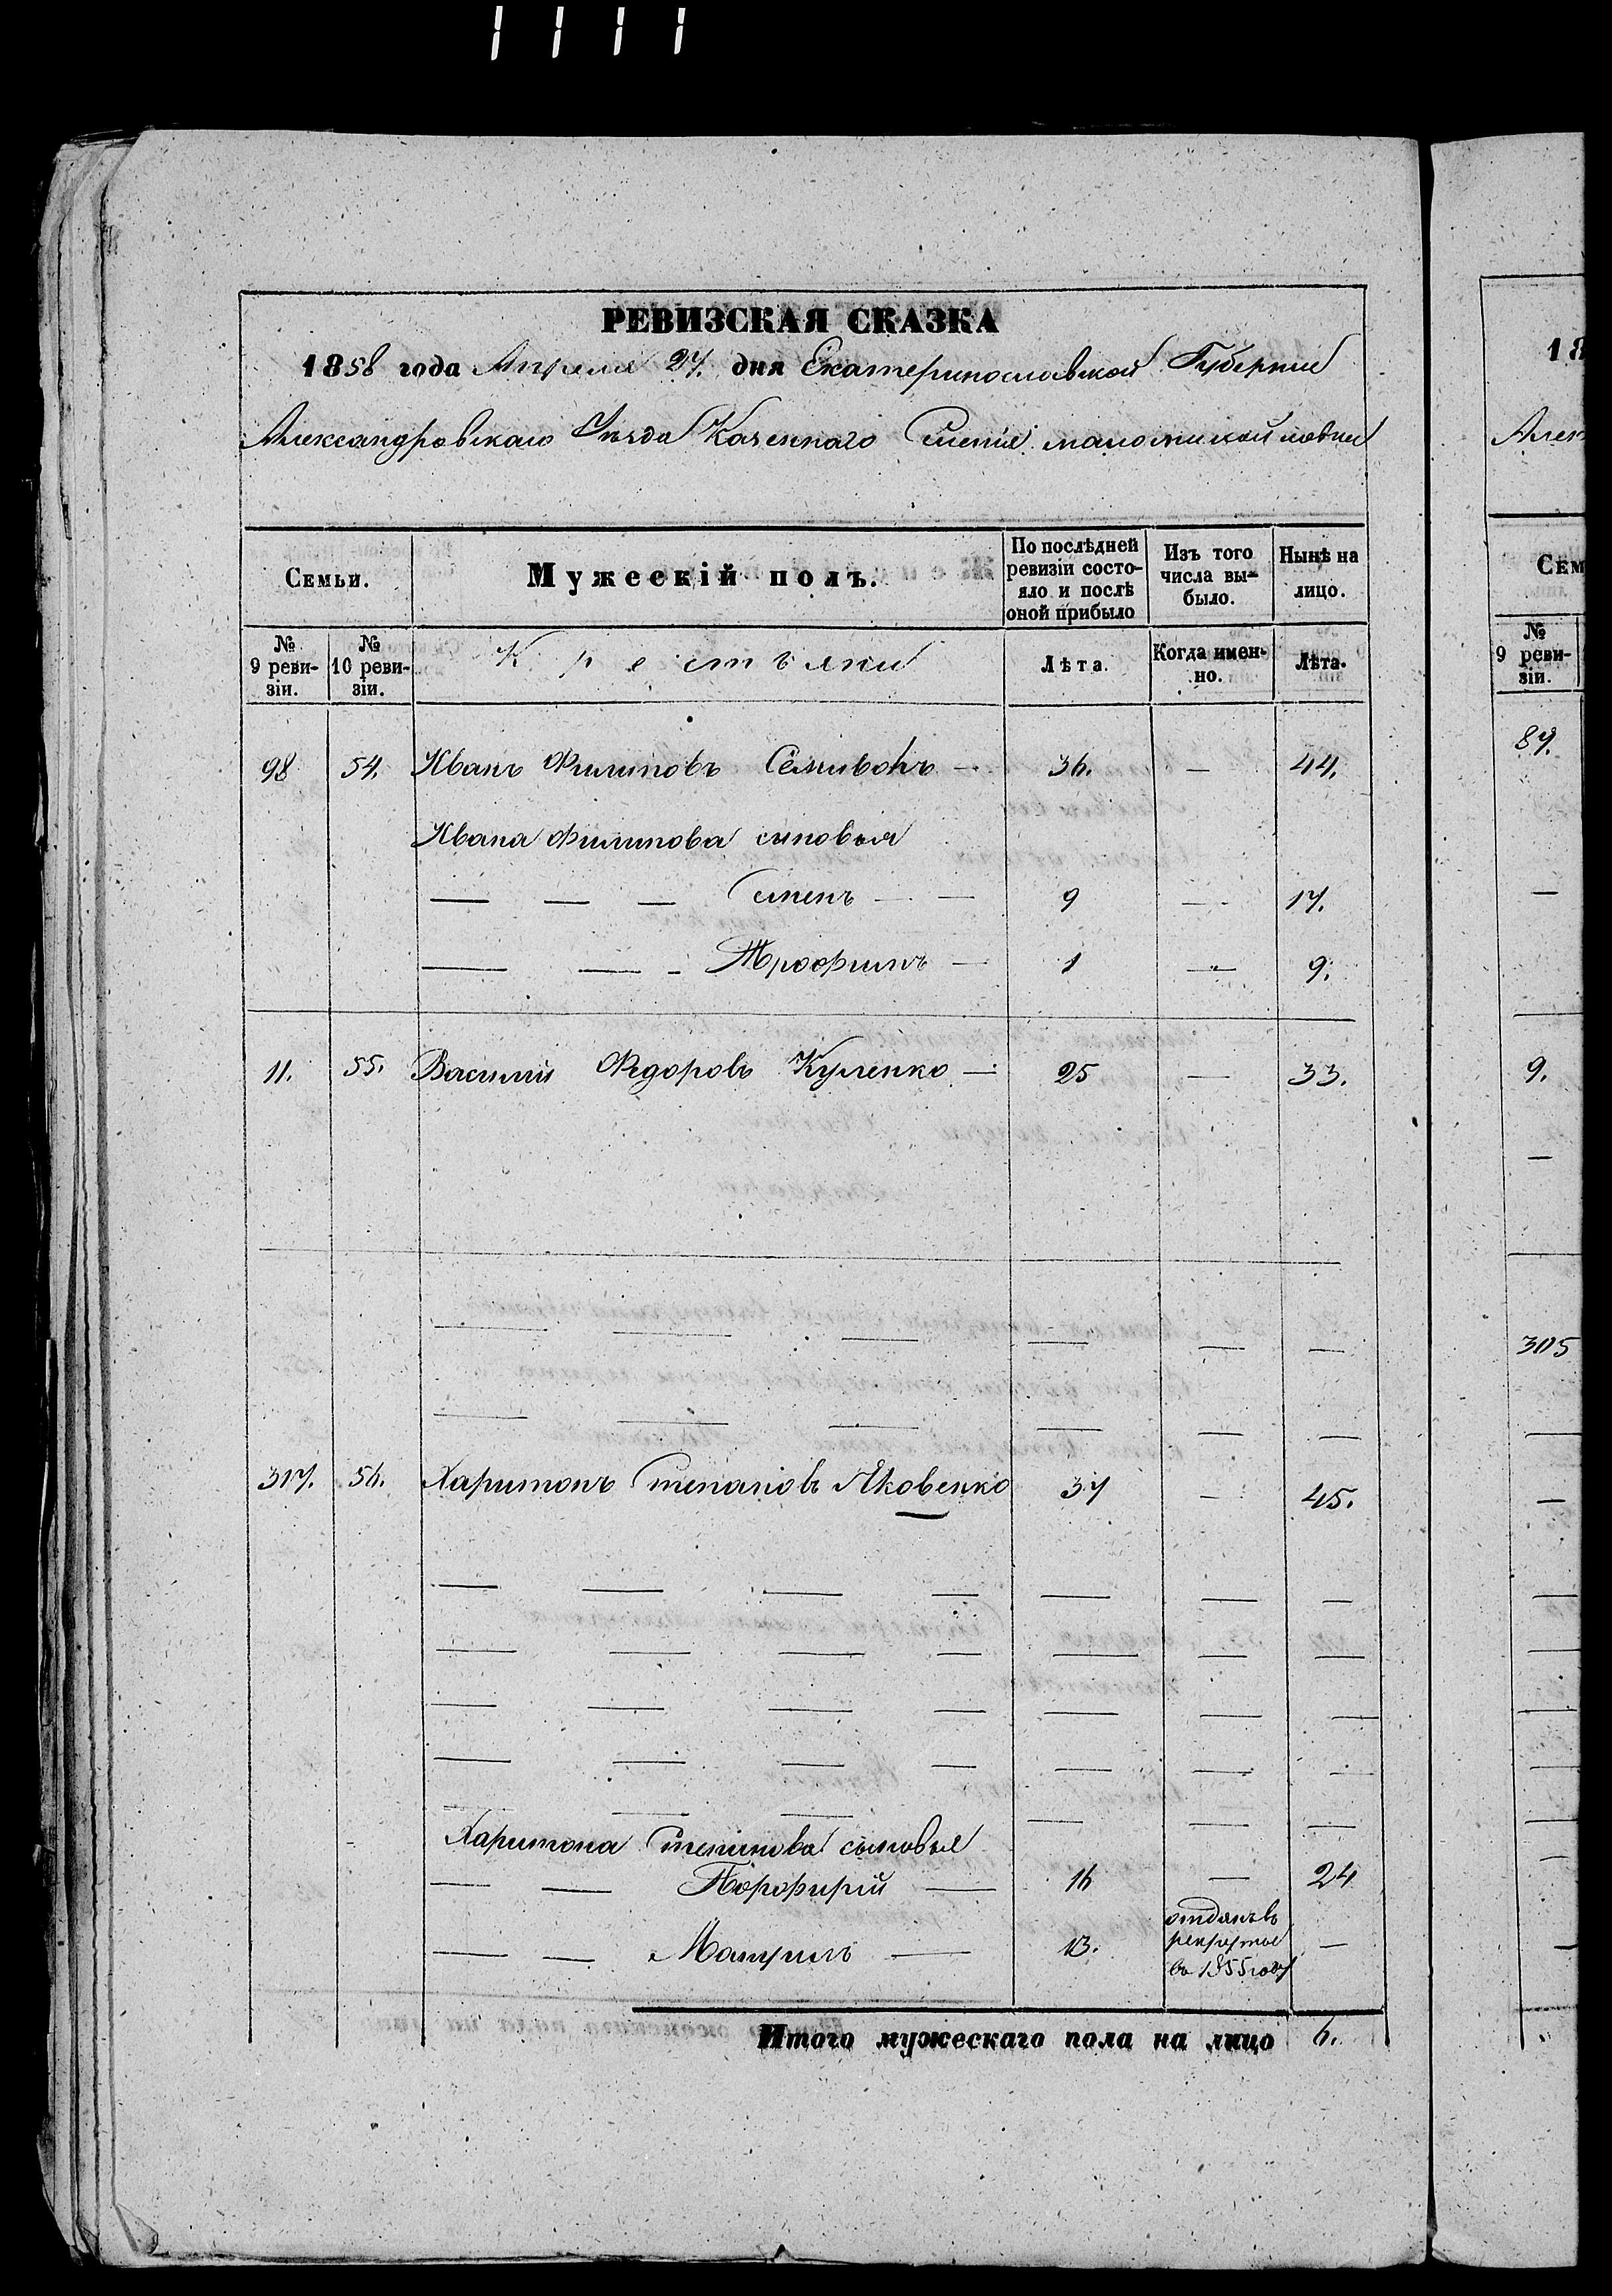 РЕВИЗСКАЯ СКАЗКА
1858 года Апреля 27. дня Екатеринославской Губернии
Александровскаго Уезда Казеннаго Селенія
18
Алек
Семьи.
Мужескій полъ.
По послѣдней ревизіи состо-
яло и послѣ оной прибыло
Изъ того числа вы-
было.
Нынѣ на лицо.
Сем
№ 9 реви-
зіи.
№ 10 реви-
зіи.
Крестьяни
Лѣта.
Когда имен-
но.
Лѣта.
№ 9 реви-
зіи.
98 54. Иванъ Филиповъ — 36. — 44.
87.
Ивана Филипова сыновья
— — — Семенъ — — 9 — 17.
— — — Трофимъ — 1 — 9.
11. 55. Василий Федоровъ Куленко — 25 — 33.
9.
305
317. 56. Харитонъ Степановъ Яковенко 37 — 45.
Харитона Степанова сыновья
— — Порофирій — 16 — 24
— — Мануилъ — 13. отданъ в
рекруты —
въ 1855 году
Итого мужескаго пола на лицо 6.